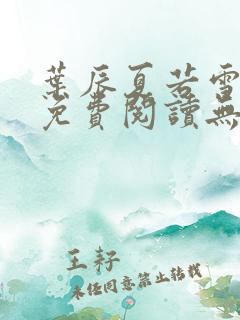 葉辰夏若雪
免費閱讀無
王籽
未經同意禁止轉載